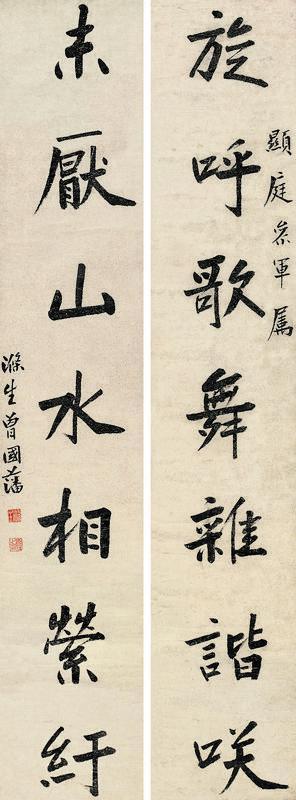 旋呼歌舞雜詼咲
顯庭叅軍屬
未厭山水相縈紆
滌生曾國藩